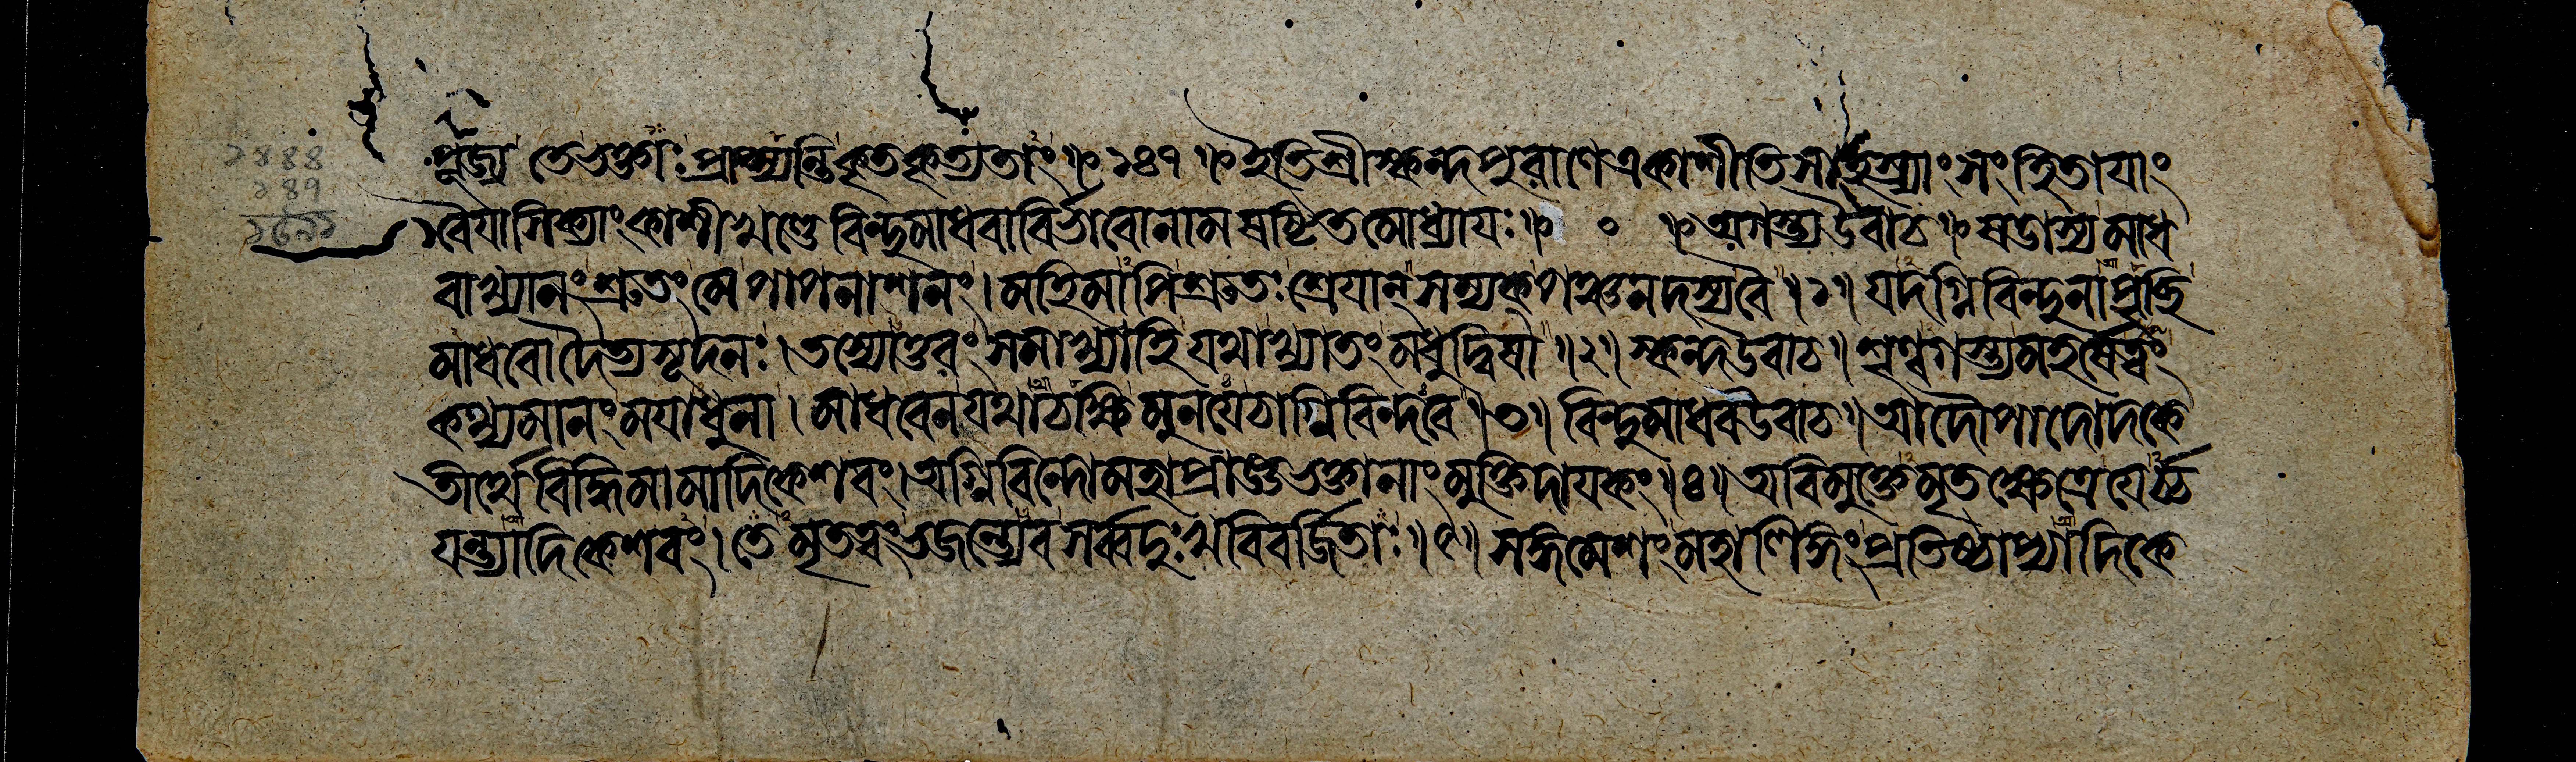 ১৪৪৪
১৪৭
১৫৯১
পূজ্য তে ভক্তাঃ প্রাপ্স্যন্তি কৃতকৃত্যতাং ॥ ১৪৭ ॥ ইতি শ্রীস্কন্দপুরাণে একাশীতিসাহস্র্যাং সংহিতাযাং
বৈযাসিক্যাং কাশীখণ্ডে বিন্দুমাধবাবির্ভাবো নাম ষষ্টিতমোধ্যাযঃ ॥ ০ ॥ অগস্ত্য উবাচ ॥ ষডাস্য মাধ
বাখ্যানং শ্রুতং মে পাপনাশনং । মহিমাপি শ্রুতঃ শ্রেযান্ সম্যক্ পঞ্চনদস্য বৈ ॥ ১ ॥ যদগ্নিবিন্দুনা প্রচ্ছি
মাধবো দৈত্যসূদনঃ । তস্যোত্তরং সমাখ্যাহি যথাখ্যাতং মধুদ্বিষা ॥ ২ ॥ স্কন্দ উবাচ ॥ শৃণ্বগস্ত্য মহর্ষে ত্বং
কথ্যমানং মযাধুনা । মাধবেন যথাচক্ষি মুনযে চাগ্নিবিন্দবে ॥ ৩ ॥ বিন্দুমাধব উবাচ ॥ আদৌ পাদোদকে
তীর্থে বিদ্ধি মামাদিকেশবং । অগ্নিবিন্দো মহাপ্রাজ্ঞ ভক্তানাং মুক্তিদাযকং ॥ ৪ ॥ অবিমুক্তেমৃতক্ষেত্রে যের্চ্চ
যন্ত্যাদিকেশবং । তেমৃতত্বং ভজন্ত্যেব সর্ব্বদুঃখবিবর্জিতাঃ ॥ ৫ ॥ সঙ্গমেশং মহালিঙ্গং প্রতিষ্ঠাপ্যাদিকে